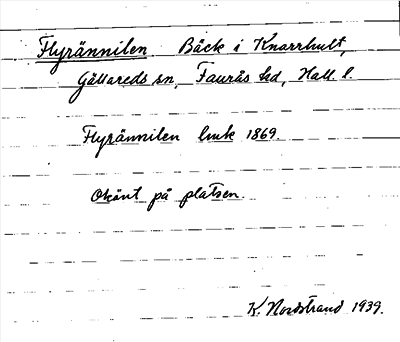 Flyrännilen Bäck i Knarrhult,
Gällareds sn, Faurås hd, Hall l.
Flyrännilen lmk 1869.
Okänt på platsen.
K. Nordstrand 1939.